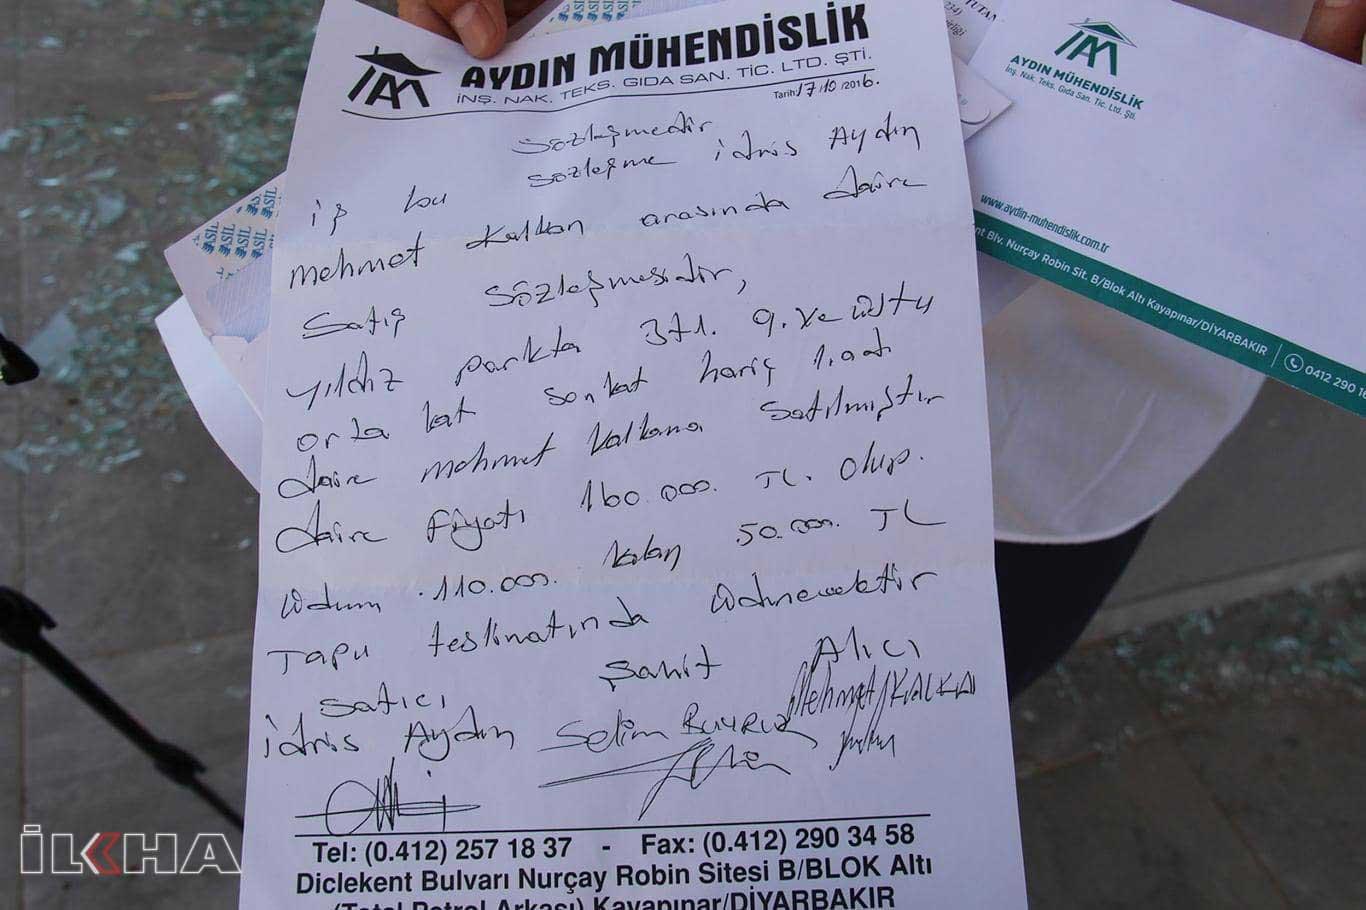 AYDIN MÜHENDİSLİK
İNŞ. NAK. TEKS. GIDA SAN. TİC. LTD. ŞTİ.
Tarih: 17/10/2016.
Sözleşmedir
iş bu sözleşme idris Aydın
mehmet Kalkan arasında daire
Satış Sözleşmesidir,
yıldız parkta 3+1. 9. ve üstü
orta kat sonkat hariç 1.ad
daire mehmet Kalkana satılmıştır
daire fiyatı 160.000. TL. Olup.
110.000. kalan 50.000. TL
Tapu teslimatında ödenecektir
satıcı Şahit Alıcı
idris Aydın Selim BUYRUK Mehmet KALKAN
Tel: (0.412) 257 18 37 - Fax: (0.412) 290 34 58
Diclekent Bulvarı Nurçay Robin Sitesi B/BLOK Altı
(Total Petrol Arkası) Kayapınar/DİYARBAKIR
AYDIN MÜHENDİSLİK
İnş. Nak. Teks. Gıda San. Tic. Ltd. Şti.
www.aydin-muhendislik.com.tr
Blv. Nurçay Robin Sit. B/Blok Altı Kayapınar/DİYARBAKIR
0412 290 16
ASİL
İLKHA